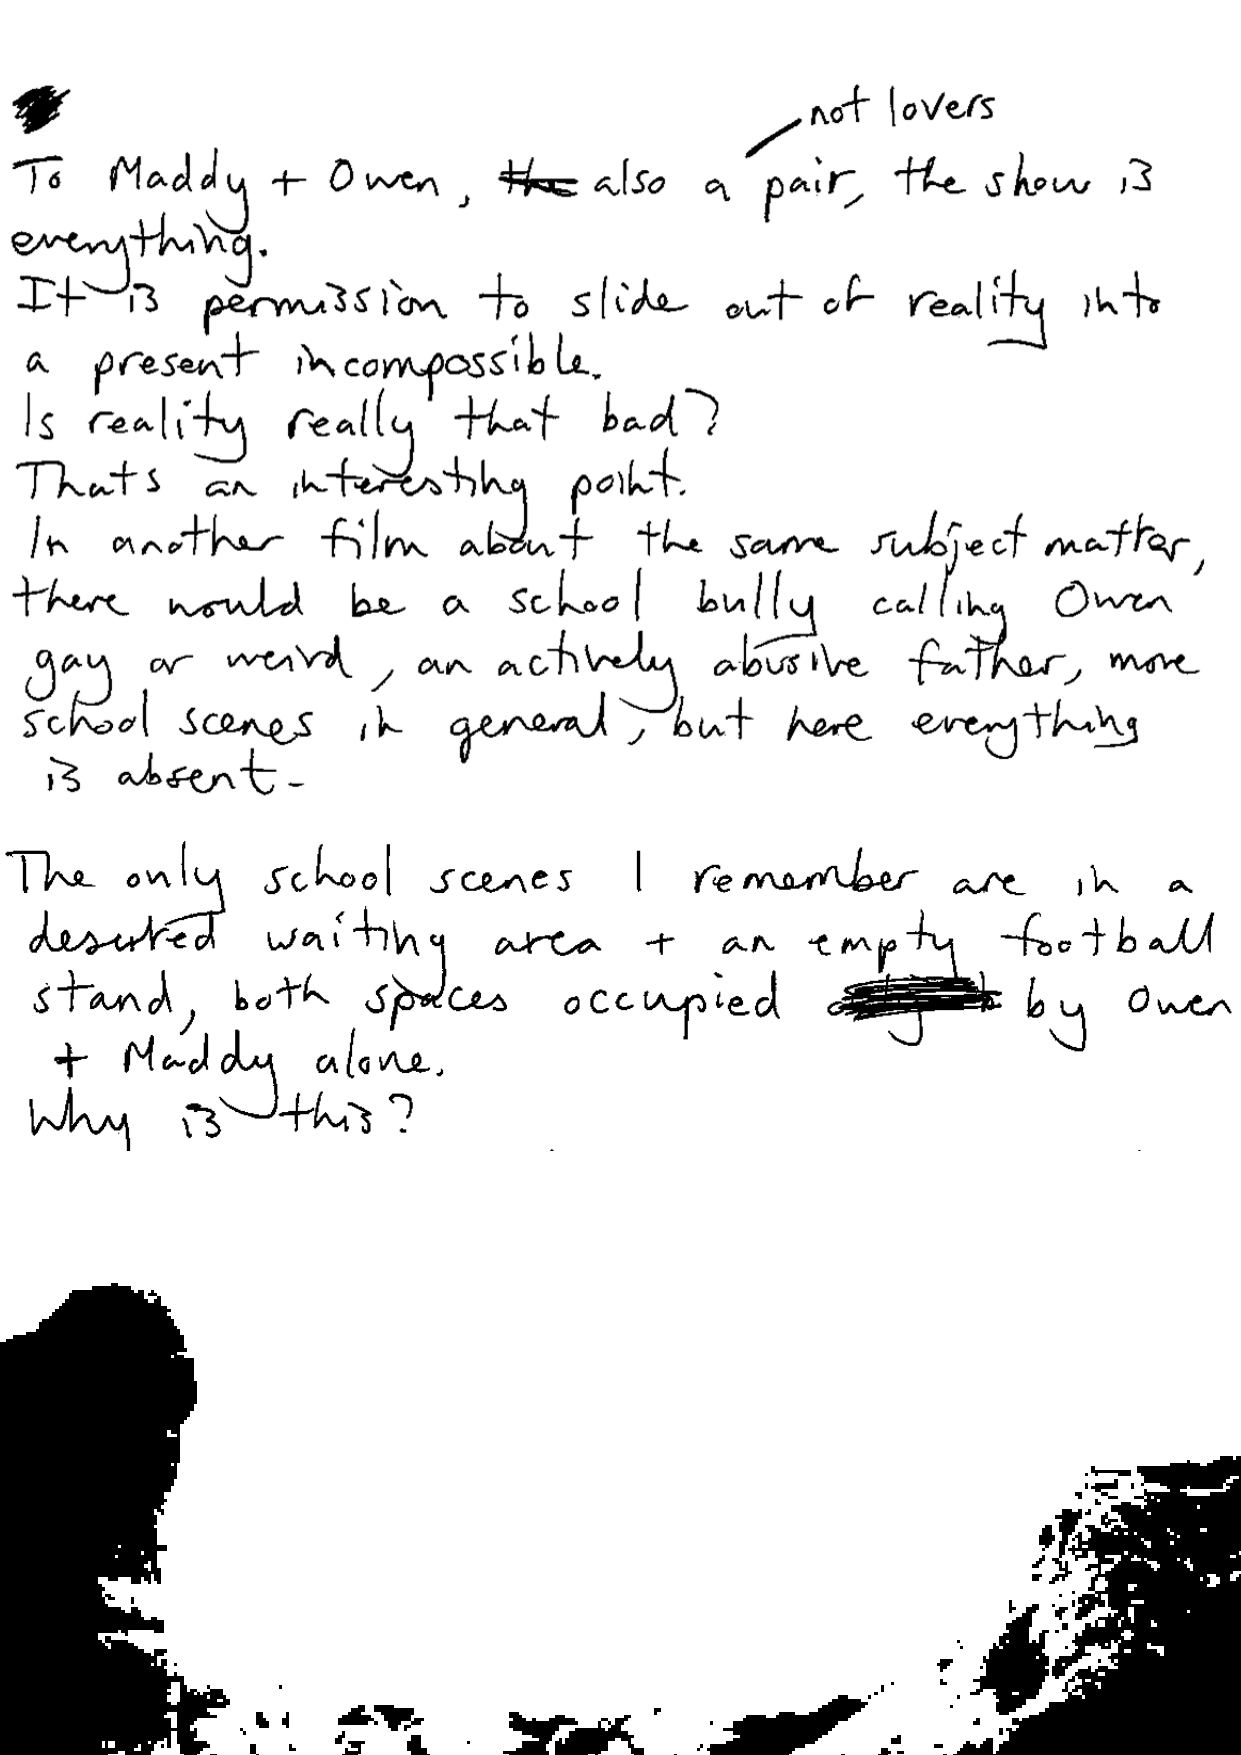 not lovers
To Maddy + Owen, the also a pair, the show is
everything.
It is permission to slide out of reality into
a present incompossible.
Is reality really that bad?
Thats an interesting point.
In another film about the same subject matter,
there would be a school bully calling Owen
gay or weird, an actively abusive father, more
school scenes in general, but here everything
is absent.
The only school scenes I remember are in a
deserted waiting area + an empty football
stand, both spaces occupied by Owen
+ Maddy alone.
Why is this?